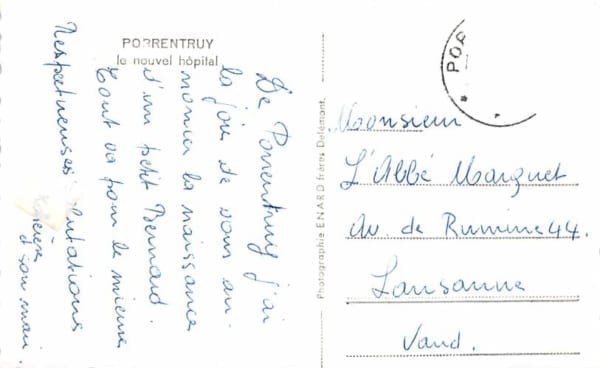 PORRENTRUY
le nouvel hôpital
De Porrentruy j'ai
la joie de vous an-
noncer la naissance
d'un petit Bernard.
Tout va pour le mieux
Respectueuses salutations
et son mari
Photographie ENARD frères Delémont.
POR
Monsieur
L'Abbé Marquet
Av. de Rumine 44.
Lausanne
Vaud.